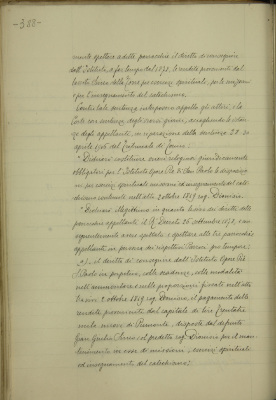 -388-
mente spettare a detti parrocchie il diritto di consegnire
dall'Istituto, a far tempo dal 1872, le rendite provenienti dal
lascito Sineo della Torre per esercizi spirituali, per le missioni
e per l'insegnamento del catechismo.
Contro tale sentenza interposero appello gli attori, e la
Corte con sentenza degli scorsi giorni, accogliendo le istan-
ze degli appellanti, in riparazione della sentenza 28-30
aprile 1906 del Tribunale di Torino:
"Dichiarò sussistenti, ovvii ed quindi giuridicamente
obbligatori per l'Istituto Opere Pie di San Paolo le disposizio-
ni per esercizi spirituali, missioni ed insegnamento del cate-
chismo contenute nell'atto 2 ottobre 1849 rog. Dionisio.
"Dichiarò illegittimo in quanto lesivo dei diritti delle
parrocchie appellanti, il R. Decreto 26 settembre 1872, e con-
seguentemente avere spettato e spettare alle tre parrocchie
appellanti, in persona dei rispettivi Parroci pro tempore;
"a). il diritto di conseguire dall'Istituto Opere Pie
S. Paolo in perpetuo, colle scadenze, colle modalità
nell'ammontare e nelle proporzioni fissate nell'atto
2 ottobre 1849 rog. Dionisio, il pagamento delle
rendite provenienti dal capitale di lire
nella somma di Piemonte, disposto dal defunto
Giulio Sineo col predetto rog. Dionisio per il man-
tenimento in esse di missioni, esercizi spirituali
ed insegnamento del catechismo;